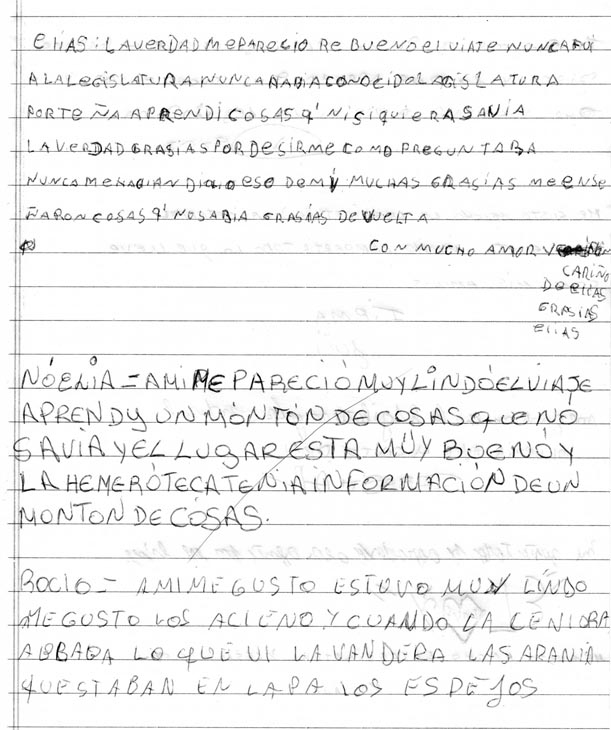 ELIAS: LA VERDAD ME PARECIO RE BUENO el VIATE NUNCA FUI
A LA LEGISLATURA NUNCA HABIA CONOCIDO LAGISLATURA
PORTEÑA APRENDI COSAS q' NISIQUIERA SAVIA
LA VERDAD GRASIAS POR DESIRME COMO PREGUNTABA
NUNCA ME HABIAN DICHO ESO DE MÍ MUCHAS GRASIAS ME ENSE
ÑARON COSAS q' NO SABIA GRASIAS DE VUELTA
CON MUCHO AMOR Y
CARIÑO
DE ELIAS
GRASIAS
ELIAS
NÓELIA = A MI ME PARECIÓ MUY LINDÓ EL VIAJE
APRENDY UN MONTÓN DE COSAS QUE NO
SAVIA Y EL LUGAR ESTA MUY BUENÓ Y
LA HEMERÓTECA TENIA INFORMACIÓN DE UN
MONTON DE COSAS.
ROCIO = A MI ME GUSTO ESTUVO MUY LINDO
ME GUSTO LOS ACIENO Y CUANDO LA CENIORA
AOBADA LO QUE VI LA VANDERA LAS ARANIA
QUESTABAN EN LAPA LOS ESPEJOS